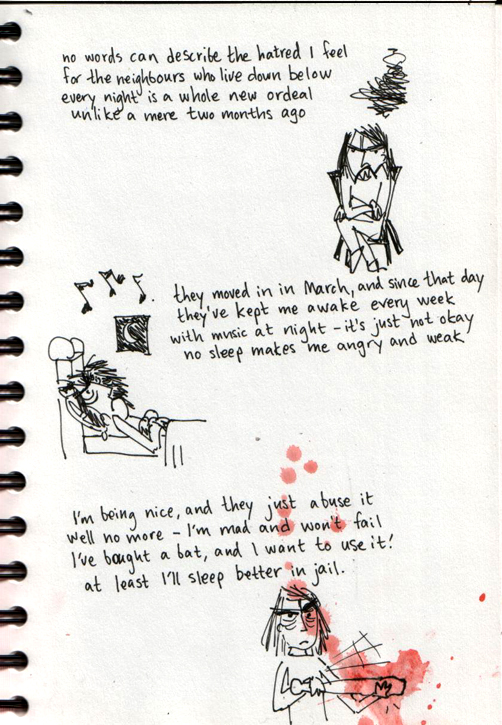 no words can describe the hatred I feel
for the neighbours who live down below
every night is a whole new ordeal
unlike a mere two months ago
they moved in in March, and since that day
they've kept me awake every week
with music at night - it's just not okay
no sleep makes me angry and weak
I'm being nice, and they just abuse it
well no more - I'm mad and won't fail
I've bought a bat, and I want to use it!
at least I'll sleep better in jail.